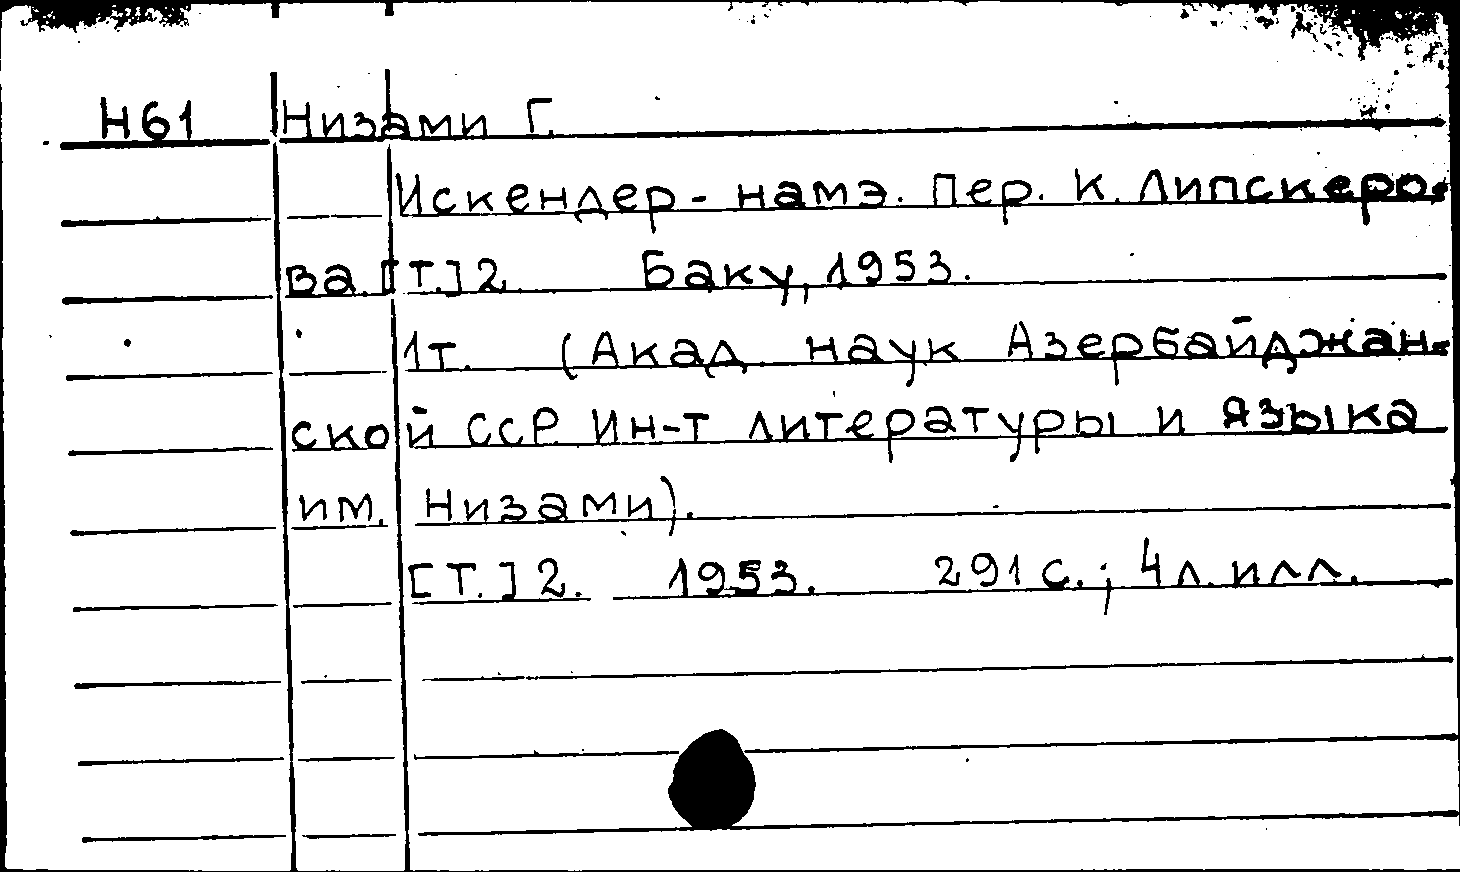 Н61 Низами Г.
Искендер-намэ. Пер. К. Липскеро-
ва. [Т.] 2. Баку, 1953.
1т. (Акад. наук Азербайджан-
ской ССР. Ин-т литературы и языка
им. Низами).
[Т.] 2. 1953. 291 с.; 4 л. илл.